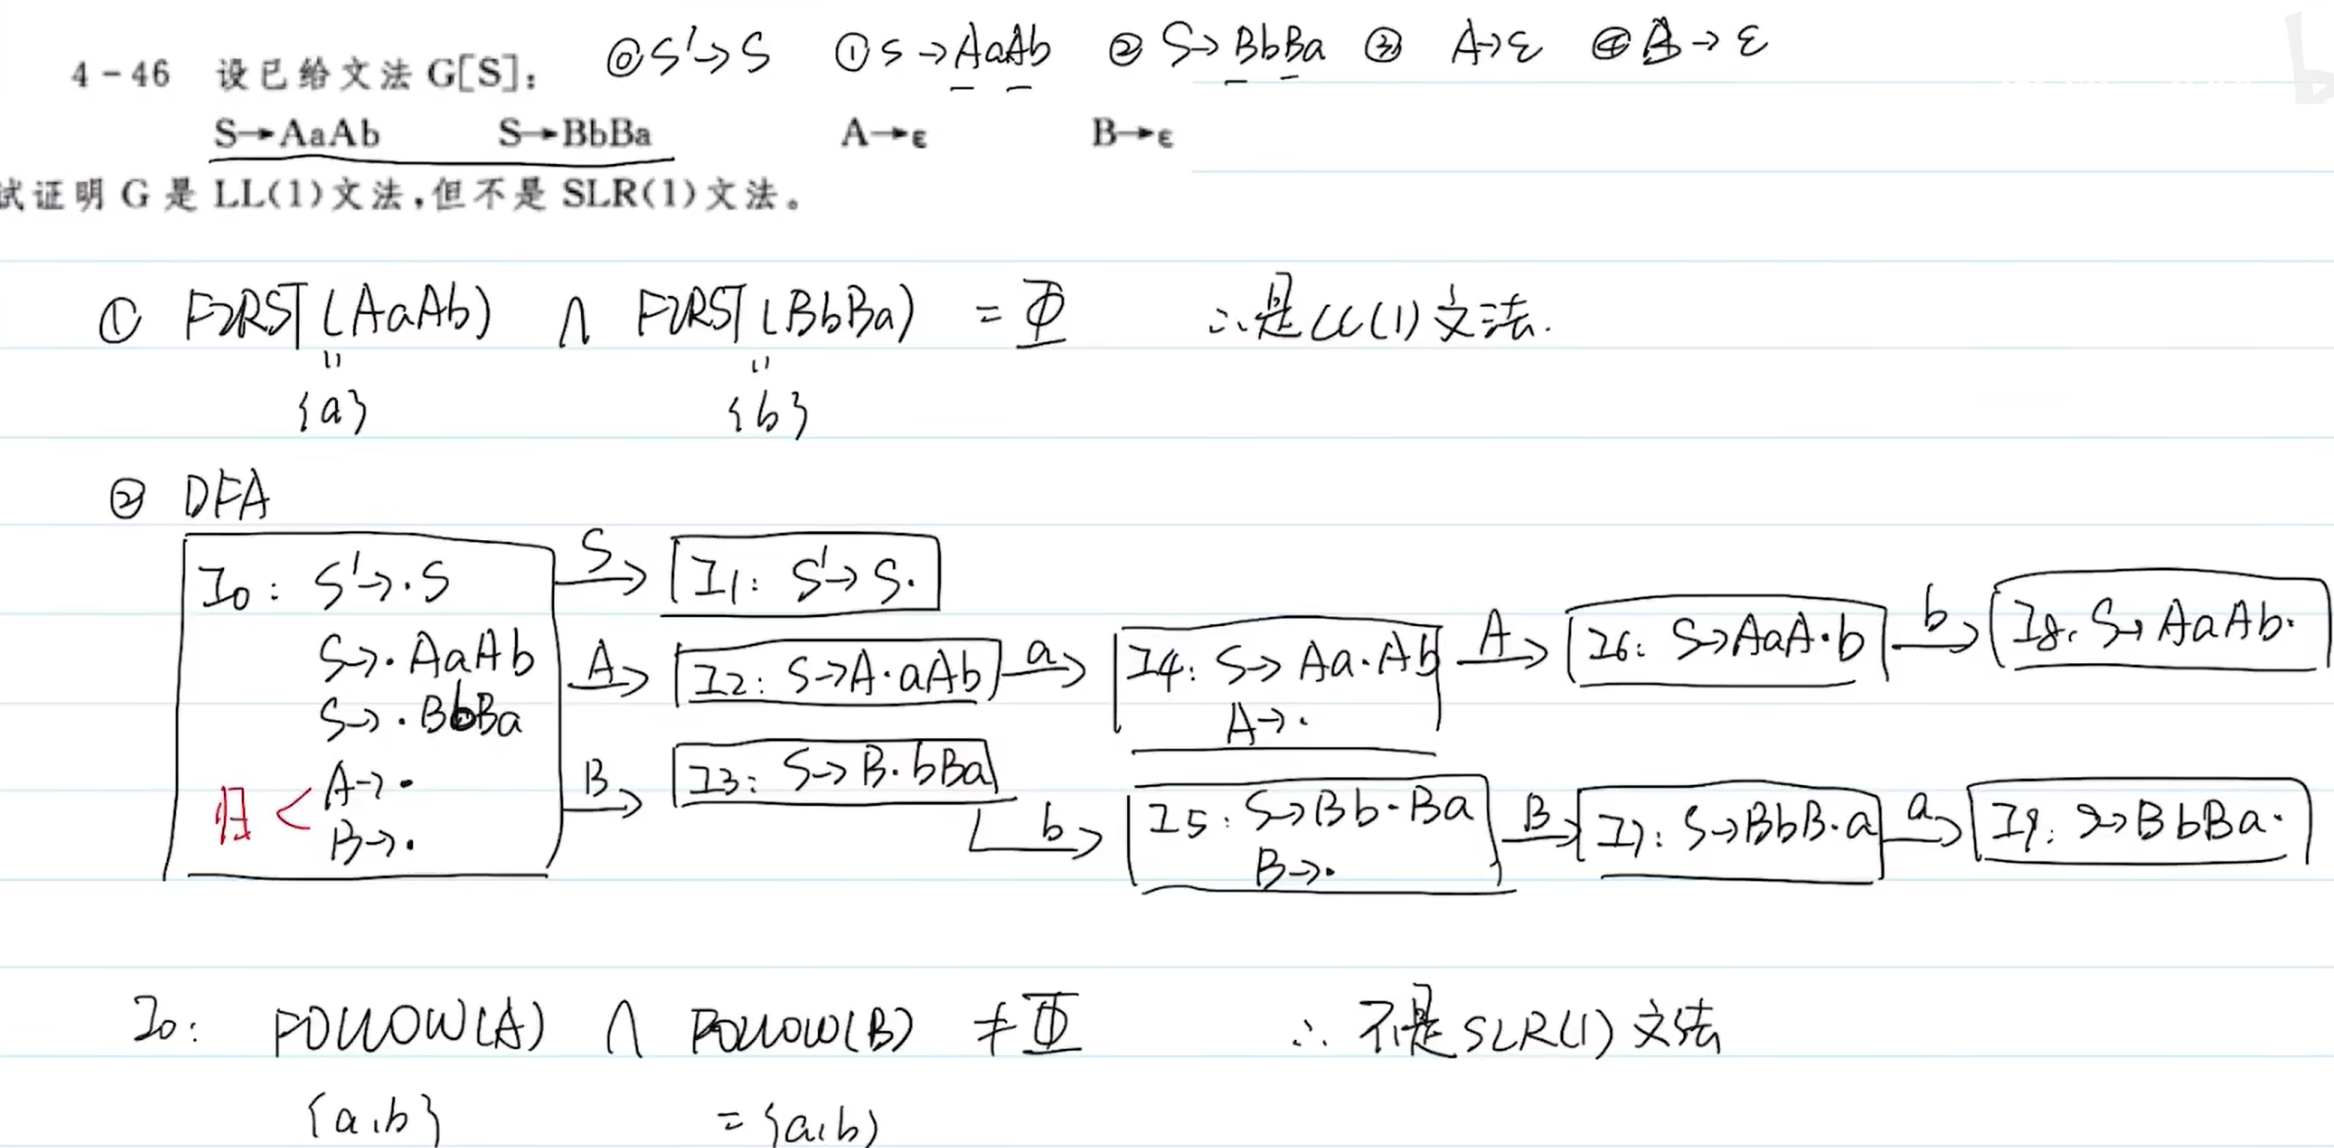 ⓪S'→S ①S→AaAb ②S→BbBa ③ A→ε ④B→ε
4-46 设已给文法 G[S]:
S→AaAb S→BbBa A→ε B→ε
试证明 G 是 LL(1)文法,但不是 SLR(1)文法。
① FIRST(AaAb) ∩ FIRST(BbBa) = Φ ∴是LL(1)文法.
" "
{a} {b}
② DFA
I0: S'→.S
S→.AaAb
S→.BbBa
A→.
归< B→.
S→ I1: S'→S.
A→ I2: S→A.aAb a→ I4: S→Aa.Ab A→ I6: S→AaA.b b→ I8: S→AaAb.
A→.
B→ I3: S→B.bBa b→ I5: S→Bb.Ba B→ I7: S→BbB.a a→ I9: S→BbBa.
B→.
I0: FOLLOW(A) ∩ FOLLOW(B) ≠Φ ∴ 不是SLR(1)文法
{a,b} ={a,b}